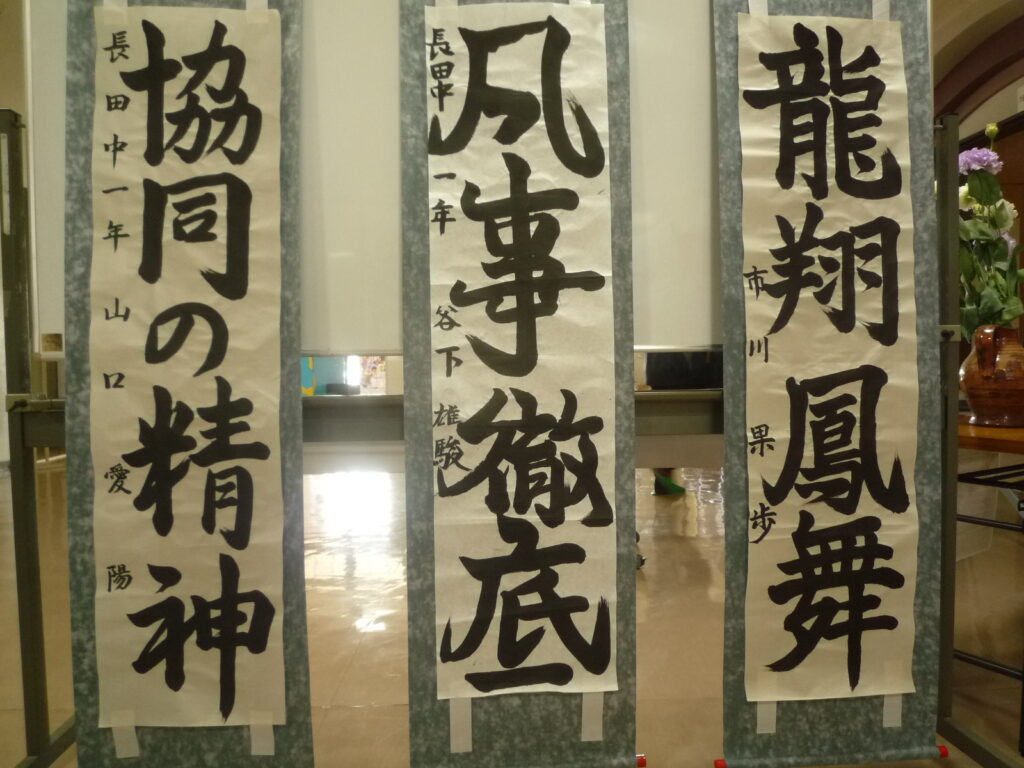 龍翔鳳舞
市川 果歩
凡事徹底
長田中一年 谷下 雄駿
協同の精神
長田中一年 山口 愛陽